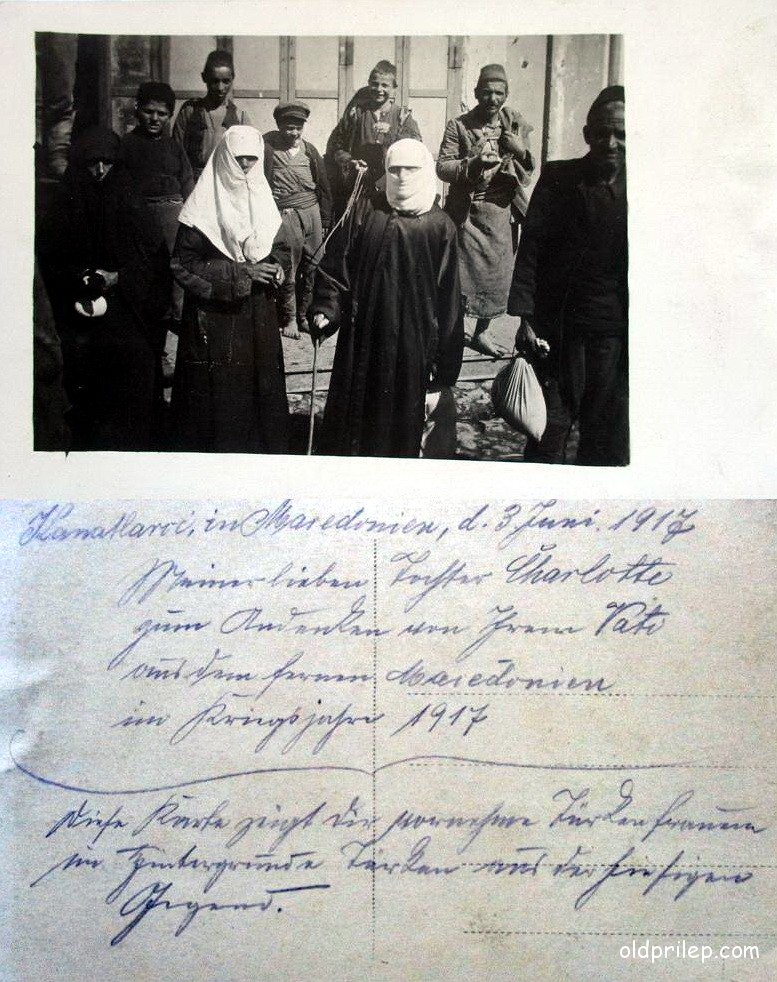 Kanatlarci, in Macedonien, d. 3. Juni. 1917
Meiner lieben Tochter Charlotte
zum Andenken von Ihrem Vati
aus dem fernen Macedonien
im Kriegsjahre 1917
Diese Karte zeigt Dir vornehme Türkenfrauen
im Hintergrunde Türken aus der hiesigen
Gegend.
oldprilep.com